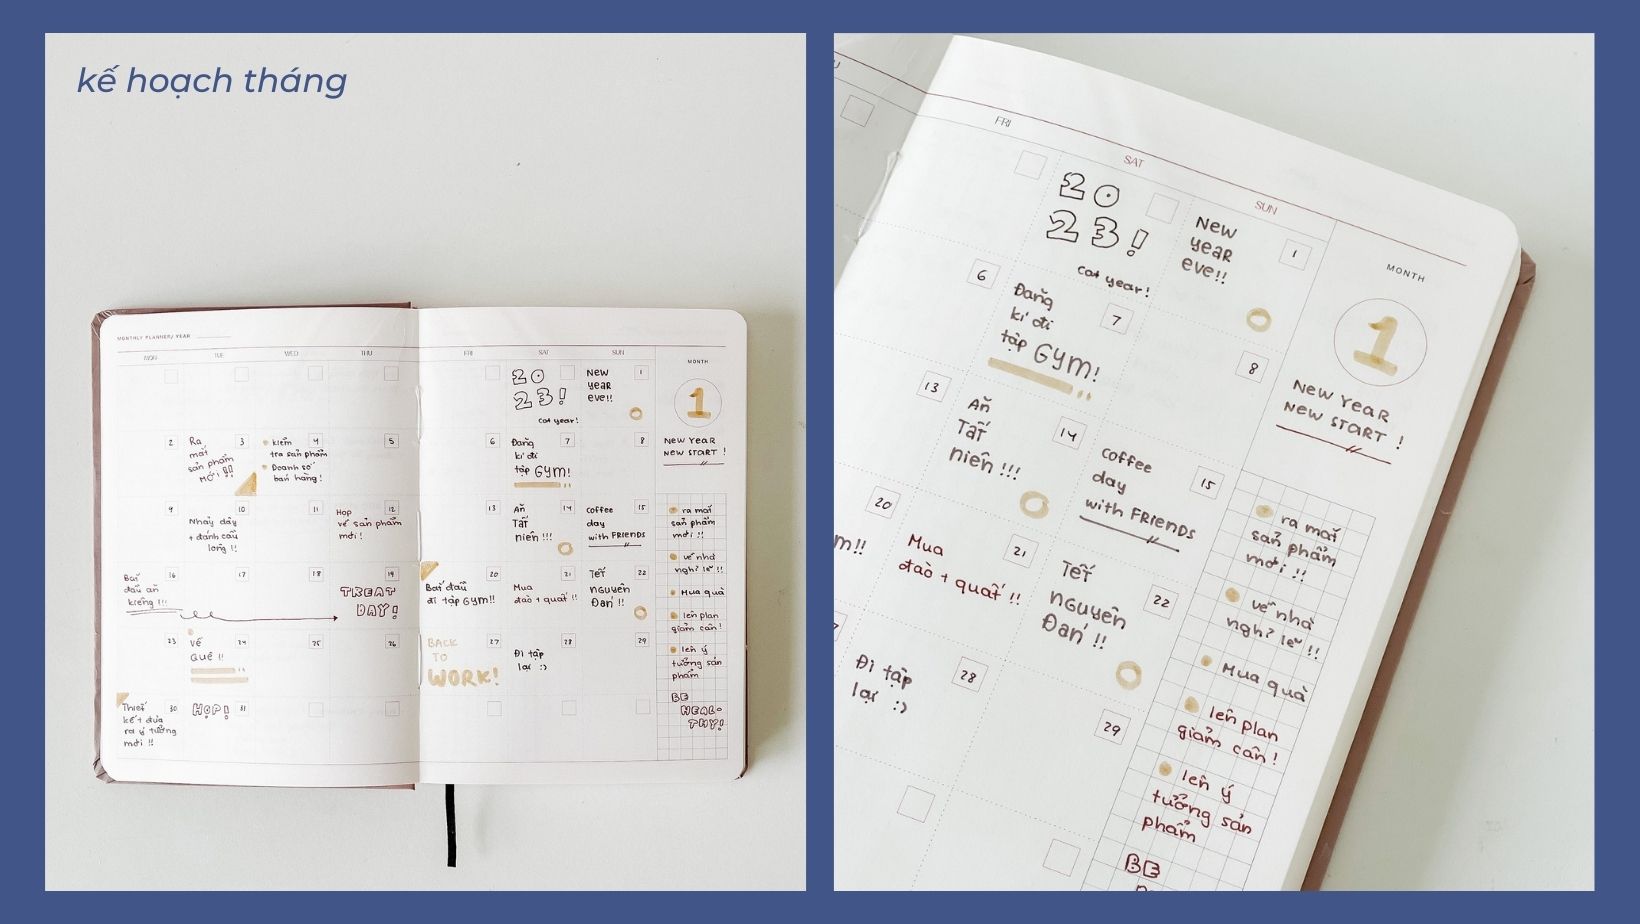 kế hoạch tháng
MONTHLY PLANNER/ YEAR
MON
TUE
WED
THU
FRI
SAT
SUN
MONTH
20
23!
cat year!
New
year
eve!!
1
1
New Year
New START !
2
Ra
mắt
sản phẩm
MỚI !!
3
kiểm
tra sản phẩm
Doanh số
bán hàng!
4
5
6
Đăng
kí đi
tập Gym!
7
8
9
Nhảy dây
+ đánh cầu
lông !!
10
11
Họp
về sản phẩm
mới !
12
13
Ăn
Tất
niên !!!
14
coffee
day
with FRIENDS
15
ra mắt
sản phẩm
mới !!
về nhà
nghỉ lễ !!
Mua quà
lên plan
giảm cân !
lên ý
tưởng sản
phẩm
BE
HEAL-
THY!
Bắt
đầu ăn
kiêng !!!
16
17
18
19
TREAT
DAY!
Bắt đầu
đi tập Gym!!
20
Mua
đào + quất !!
21
Tết
nguyên
Đán !!
22
23
về
Quê !!
24
25
26
BACK
TO
WORK!
27
Đi tập
lại :)
28
29
Thiết
kế + đưa
ra ý tưởng
mới !!
30
HỌP!
31
FRI
SAT
SUN
MONTH
20
23!
cat year!
New
year
eve!!
1
1
New Year
New START !
6
Đăng
kí đi
tập Gym!
7
8
13
Ăn
Tất
niên !!!
14
coffee
day
with FRIENDS
15
20
m!!
Mua
đào + quất !!
21
Tết
nguyên
Đán !!
22
Đi tập
lại :)
28
29
ra mắt
sản phẩm
mới !!
về nhà
nghỉ lễ !!
Mua quà
lên plan
giảm cân !
lên ý
tưởng sản
phẩm
BE